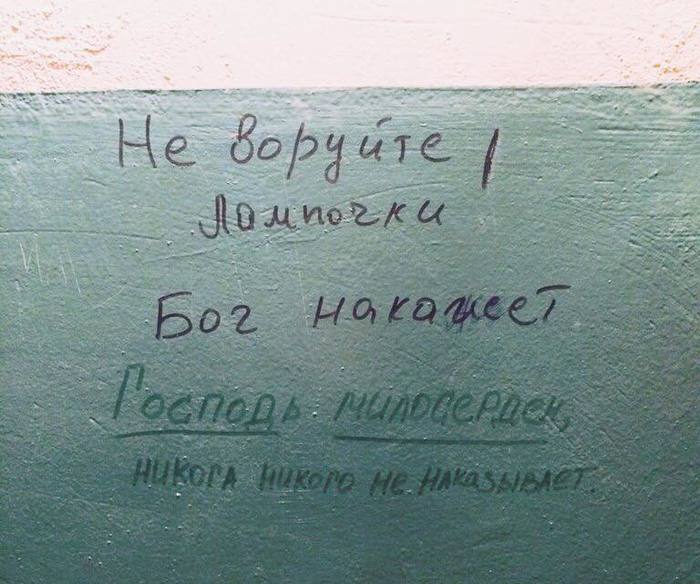 Не воруйте !
Лампочки
Бог накажет
Господь милосерден,
никога никого не наказывает.